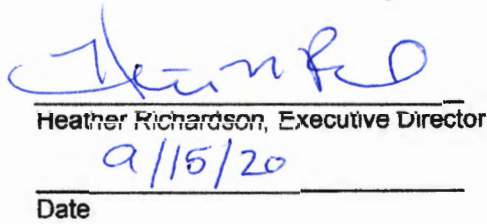 Heather Richardson, Executive Director
9/15/20
Date